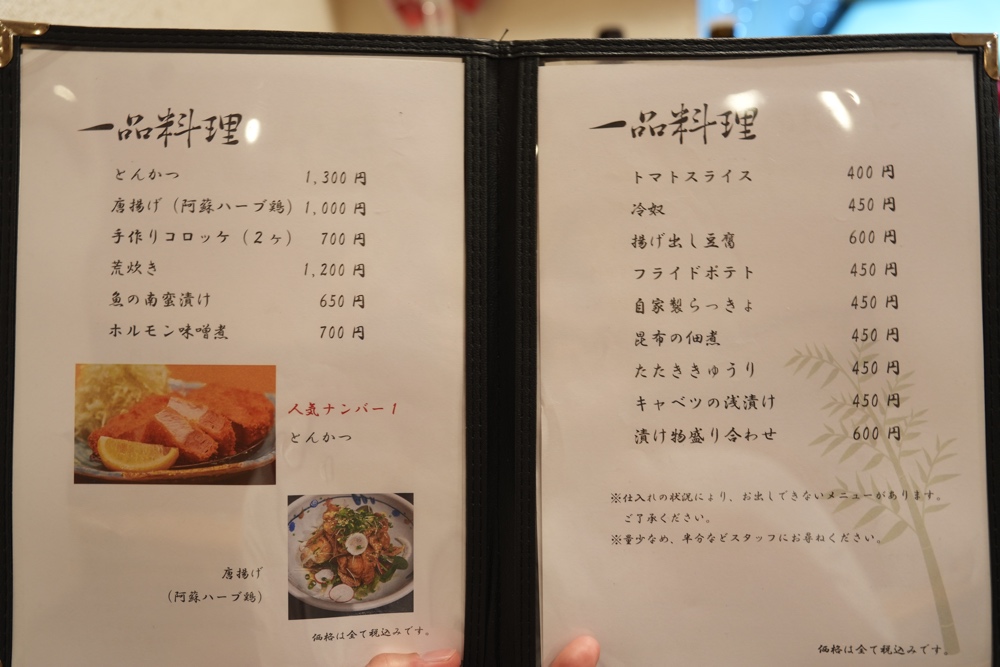 一品料理
とんかつ 1,300 円
唐揚げ（阿蘇ハーブ鶏） 1,000 円
手作りコロッケ（2ヶ） 700 円
荒炊き 1,200 円
魚の南蛮漬け 650 円
ホルモン味噌煮 700 円
人気ナンバー1
とんかつ
唐揚げ
（阿蘇ハーブ鶏）
価格は全て税込みです。
一品料理
トマトスライス 400 円
冷奴 450 円
揚げ出し豆腐 600 円
フライドポテト 450 円
自家製らっきょ 450 円
昆布の佃煮 450 円
たたききゅうり 450 円
キャベツの浅漬け 450 円
漬け物盛り合わせ 600 円
※仕入れの状況により、お出しできないメニューがあります。
ご了承ください。
※量少なめ、半分などスタッフにお尋ねください。
価格は全て税込みです。